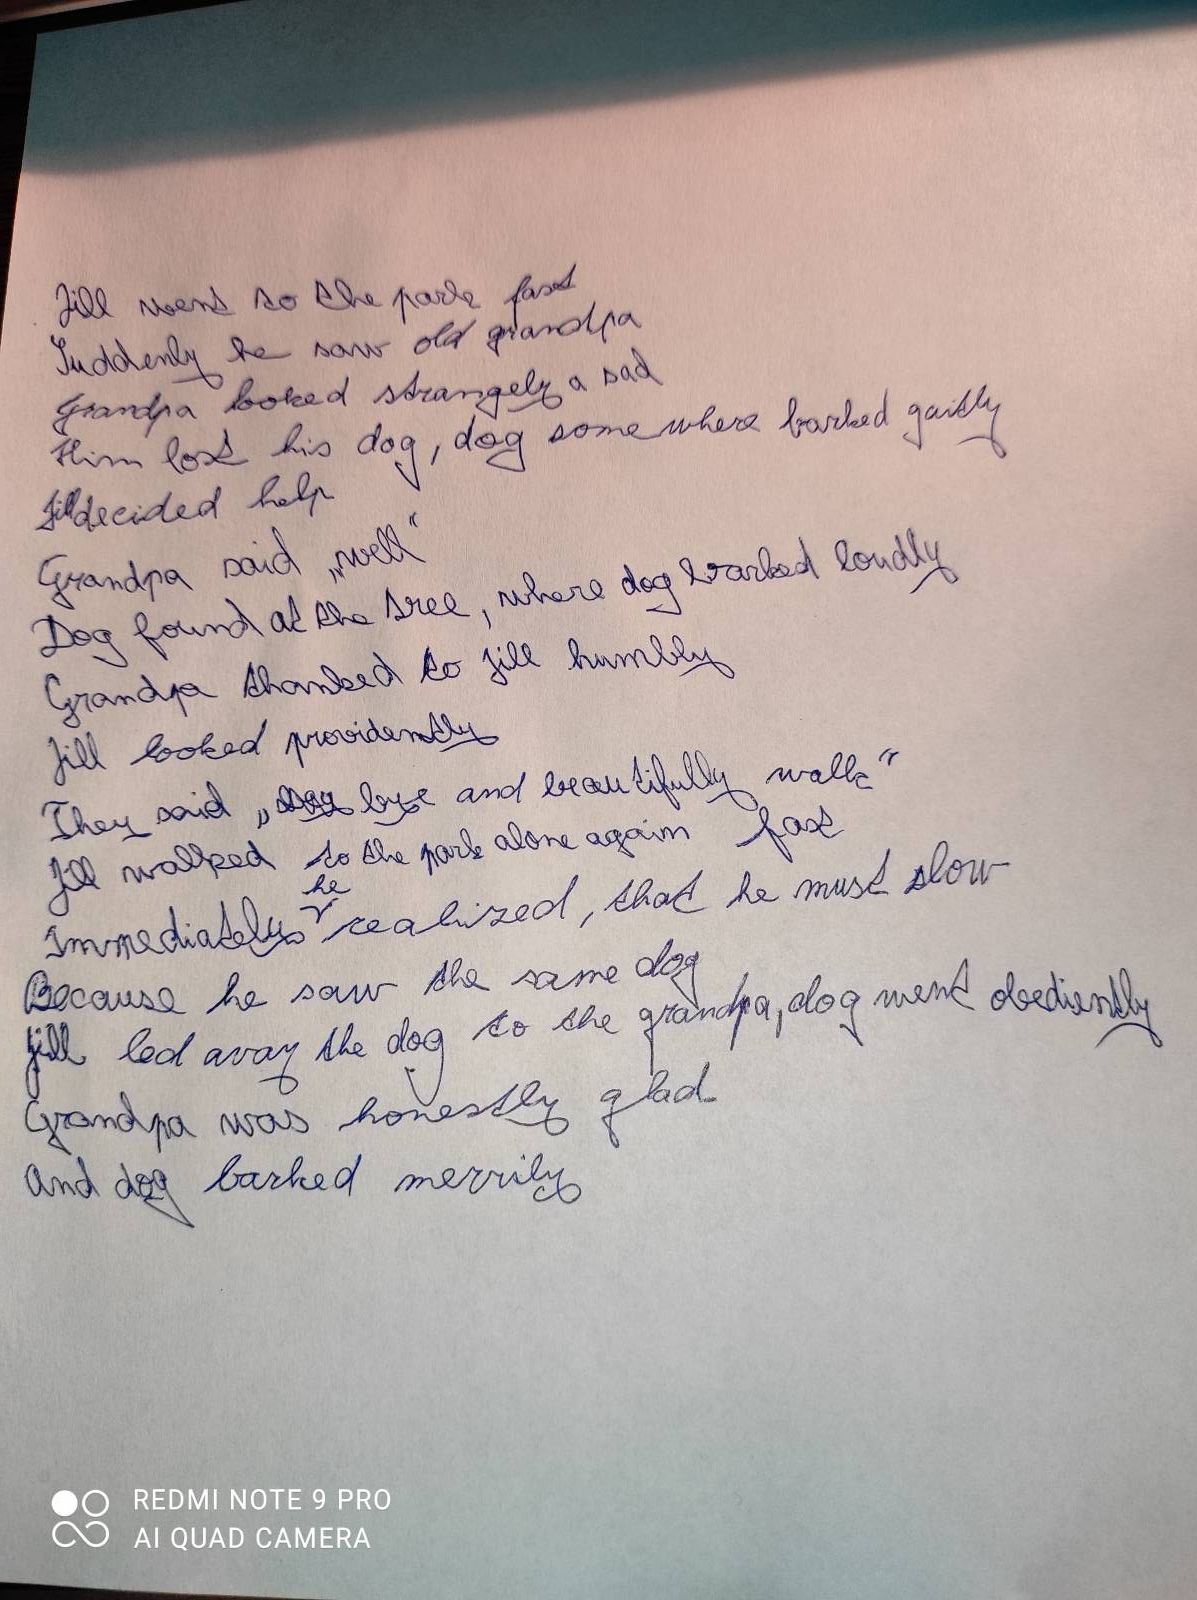 Jill went to the park fast
Suddenly he saw old grandpa
Grandpa looked strangely a sad
Him lost his dog, dog somewhere barked gaitly
Jill decided help
Grandpa said „well“
Dog found at the tree, where dog barked loudly
Grandpa thanked to Jill humbly
Jill looked providently
They said „ bye and beautifully walk“
Jill walked to the park alone again fast
Immediately he realized, that he must slow
Because he saw the same dog
Jill led away the dog to the grandpa, dog went obediently
Grandpa was honestly glad
And dog barked merrily
REDMI NOTE 9 PRO
AI QUAD CAMERA